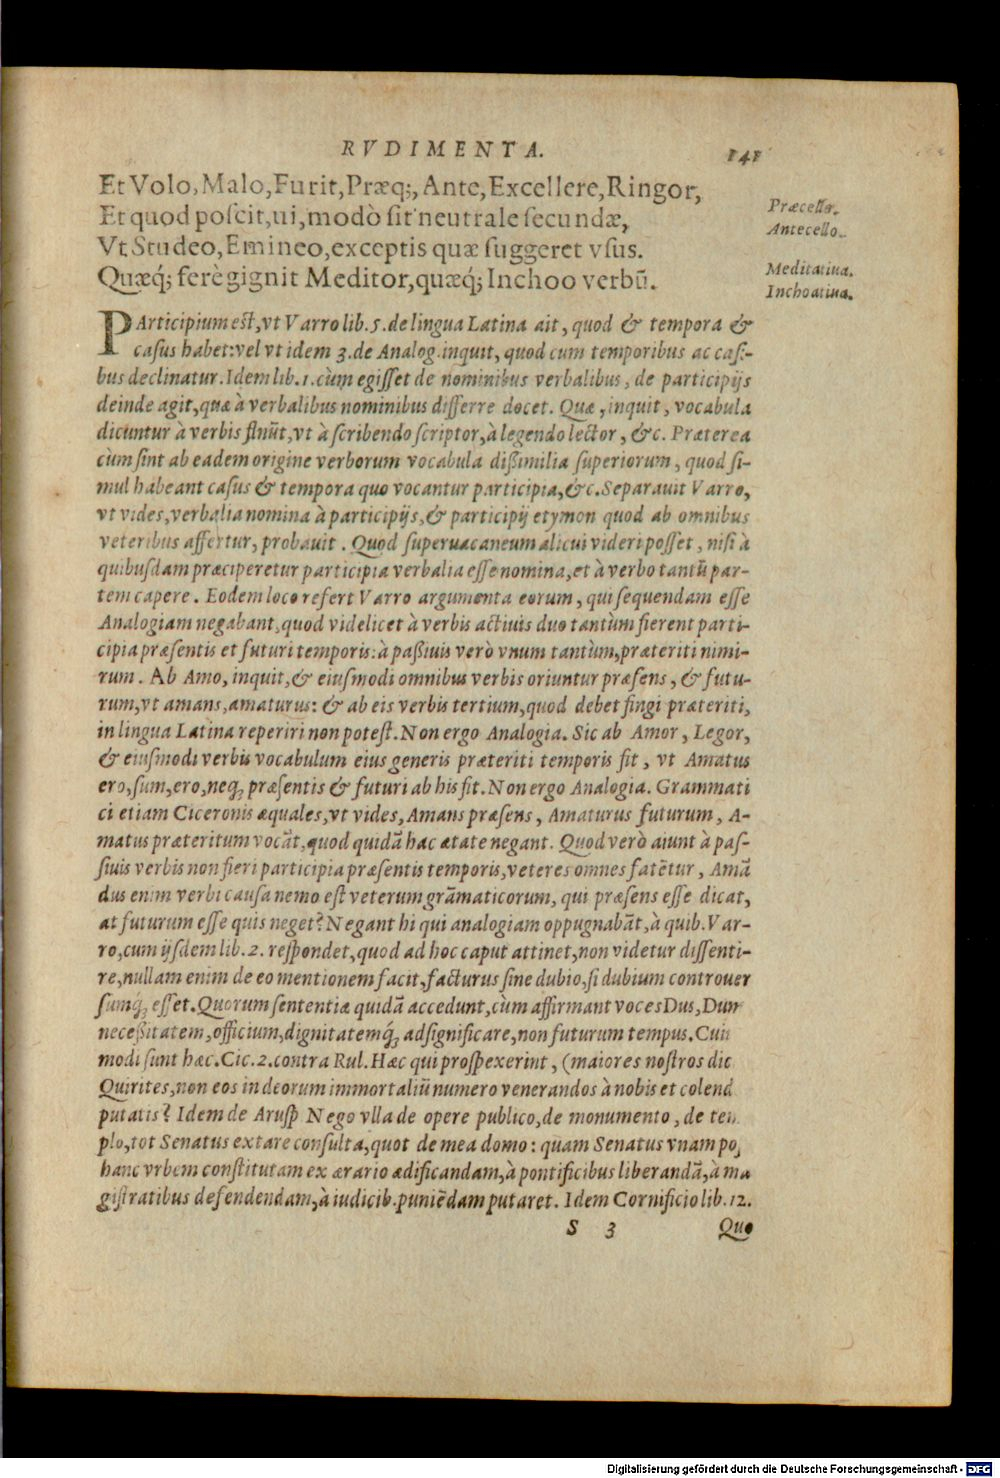 RVDIMENTA. 141
Et Volo, Malo, Furit, Præq;, Ante, Excellere, Ringor,
Et quod poscit, ui, modò sit neutrale secundæ,
Vt Studeo, Emineo, exceptis quæ suggeret vsus.
Quæq́; ferè gignit Meditor, quæq́; Inchoo verbũ.
Præcello.
Antecello.
Meditatiua.
Inchoatiua.
PArticipium est, vt Varro lib. 5. de lingua Latina ait, quod & tempora &
casus habet: vel vt idem 3. de Analog. inquit, quod cum temporibus ac casi-
bus declinatur. Idem lib. 1. cùm egisset de nominibus verbalibus, de participijs
deinde agit, quæ à verbalibus nominibus differre docet. Quæ, inquit, vocabula
dicuntur à verbis flnũt, vt à scribendo scriptor, à legendo lector, &c. Præterea
cùm sint ab eadem origine verborum vocabula dißimilia superiorum, quod si-
mul habeant casus & tempora quo vocantur participia, &c. Separauit Varro,
vt vides, verbalia nomina à participijs, & participij etymon quod ab omnibus
veteribus affertur, probauit. Quod superuacaneum alicui videri posset, nisi à
quibusdam præciperetur participia verbalia esse nomina, et à verbo tantũ par-
tem capere. Eodem loco refert Varro argumenta eorum, qui sequendam esse
Analogiam negabant, quod videlicet à verbis actiuis duo tantùm fierent parti-
cipia præsentis et futuri temporis: à paßiuis verò vnum tantùm, præteriti nimi-
rum. Ab Amo, inquit, & eiusmodi omnibus verbis oriuntur præsens, & futu-
rum, vt amans, amaturus: & ab eis verbis tertium, quod debet fingi præteriti,
in lingua Latina reperiri non potest. Non ergo Analogia. Sic ab Amor, Legor,
& eiusmodi verbis vocabulum eius generis præteriti temporis fit, vt Amatus
ero, sum, ero, neq; præsentis & futuri ab his fit. Non ergo Analogia. Grammati
ci etiam Ciceronis æquales, vt vides, Amans præsens, Amaturus futurum, A-
matus præteritum vocãt, quod quidã hac ætate negant. Quod verò aiunt à pas-
siuis verbis non fieri participia præsentis temporis, veteres omnes fatẽtur, Amã
dus enim verbi causa nemo est veterum grãmaticorum, qui præsens esse dicat,
at futurum esse quis neget? Negant hi qui analogiam oppugnabãt, à quib. Var-
ro, cum ijsdem lib. 2. respondet, quod ad hoc caput attinet, non videtur dissenti-
re, nullam enim de eo mentionem facit, facturus sine dubio, si dubium controuer
sumq́; esset. Quorum sententiæ quidã accedunt, cùm affirmant voces Dus, Dum
neceßitatem, officium, dignitatemq́; adsignificare, non futurum tempus. Cuius
modi sunt hæc. Cic. 2. contra Rul. Hæc qui prospexerint, (maiores nostros dic
Quirites, non eos in deorum immortaliũ numero venerandos à nobis et colend
putatis? Idem de Arusp Nego vlla de opere publico, de monumento, de tem
plo, tot Senatus extare consulta, quot de mea domo: quam Senatus vnam pos
hanc vrbem constitutam ex ærario ædificandam, à pontificibus liberandã, à ma
gistratibus defendendam, à iudicib. puniẽdam putaret. Idem Cornificio lib. 12.
S 3 Quo
Digitalisierung gefördert durch die Deutsche Forschungsgemeinschaft - DFG